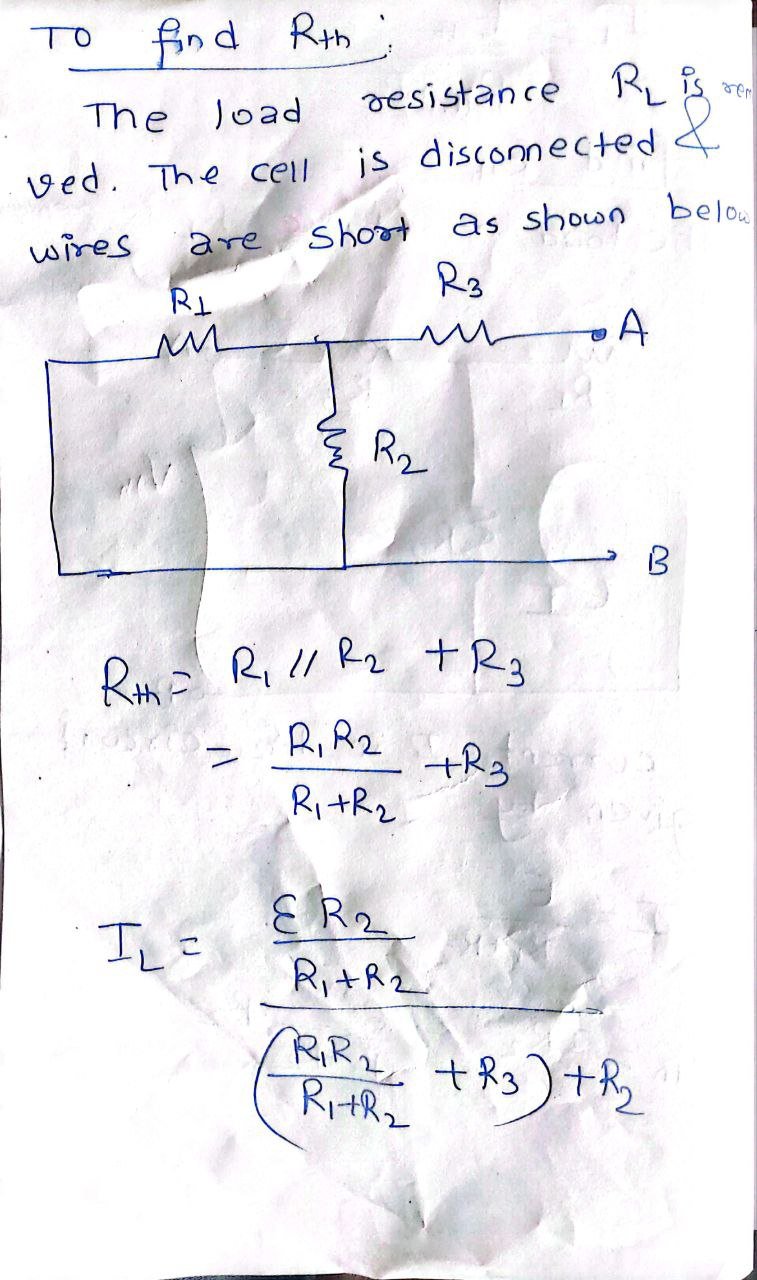 To find Rth:
The load resistance RL is rem
ved. The cell is disconnected &
wires are short as shown below
R1
R3
A
R2
B
Rth = R1 // R2 + R3
= R1R2 / R1+R2 + R3
IL = ER2 / R1+R2 / (R1R2 / R1+R2 + R3) + R2